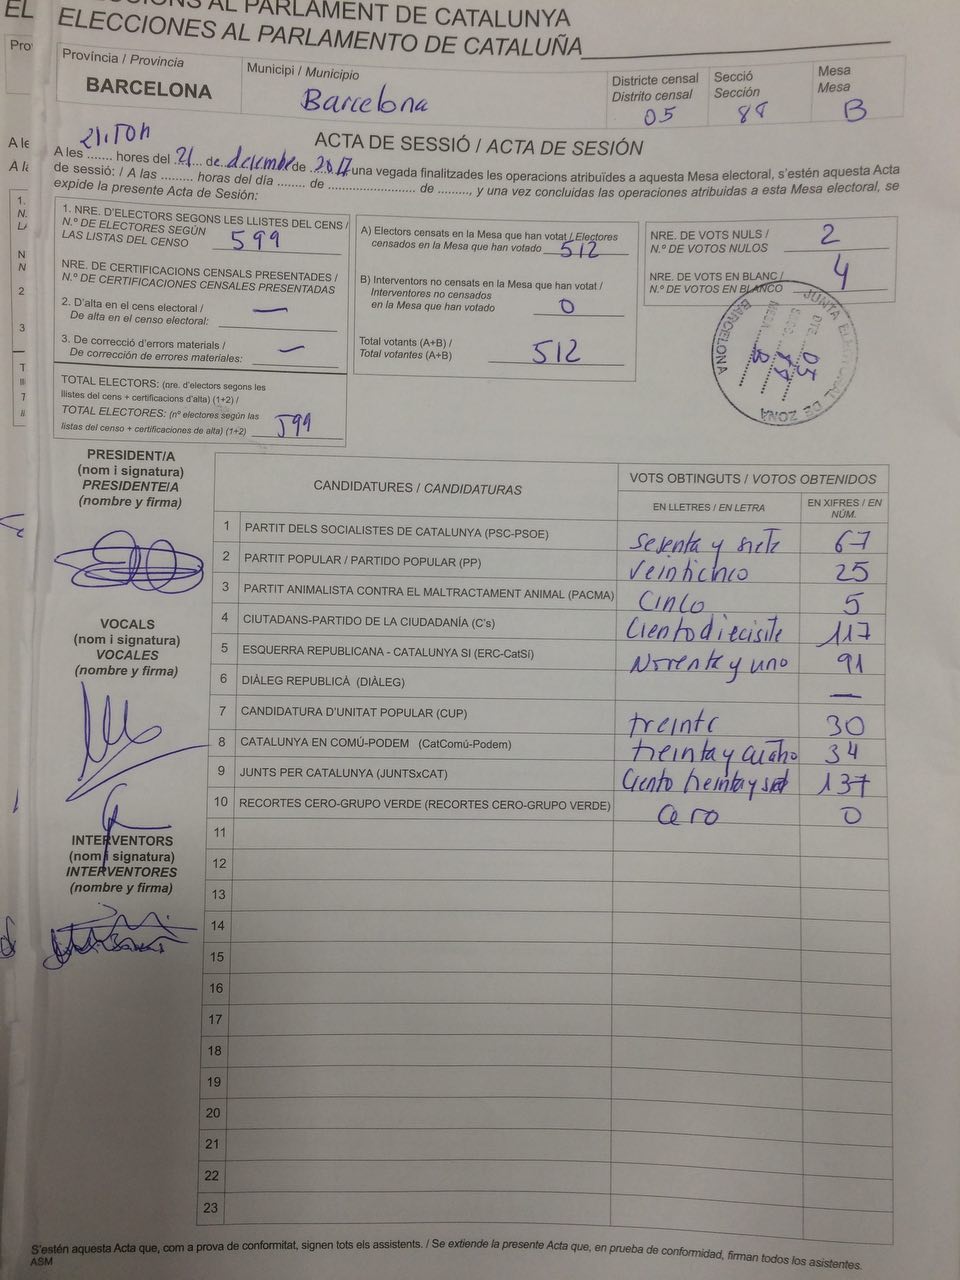 ELECCIONS AL PARLAMENT DE CATALUNYA
ELECCIONES AL PARLAMENTO DE CATALUÑA
Província / Provincia
BARCELONA
Municipi / Municipio
Barcelona
Districte censal
Distrito censal
05
Secció
Sección
88
Mesa
Mesa
B
ACTA DE SESSIÓ / ACTA DE SESIÓN
21:50h
A les ........ hores del 21 de desembre de 2017 una vegada finalitzades les operacions atribuïdes a aquesta Mesa electoral, s'estén aquesta Acta
de sessió: / A las ......... horas del día ........ de .................... de ........., y una vez concluidas las operaciones atribuidas a esta Mesa electoral, se
expide la presente Acta de Sesión:
1. NRE. D'ELECTORS SEGONS LES LLISTES DEL CENS /
N.º DE ELECTORES SEGÚN
LAS LISTAS DEL CENSO 599
NRE. DE CERTIFICACIONS CENSALS PRESENTADES /
N.º DE CERTIFICACIONES CENSALES PRESENTADAS
2. D'alta en el cens electoral /
De alta en el censo electoral: —
3. De correcció d'errors materials /
De corrección de errores materiales: —
TOTAL ELECTORS: (nre. d'electors segons les
llistes del cens + certificacions d'alta) (1+2) /
TOTAL ELECTORES: (nº electores según las
listas del censo + certificaciones de alta) (1+2) 599
A) Electors censats en la Mesa que han votat / Electores
censados en la Mesa que han votado 512
B) Interventors no censats en la Mesa que han votat /
Interventores no censados
en la Mesa que han votado 0
Total votants (A+B) /
Total votantes (A+B) 512
NRE. DE VOTS NULS /
N.º DE VOTOS NULOS 2
NRE. DE VOTS EN BLANC /
N.º DE VOTOS EN BLANCO 4
JUNTA ELECTORAL DE ZONA
BARCELONA
DTE. 05
SECC. 88
MESA B
PRESIDENT/A
(nom i signatura)
PRESIDENTE/A
(nombre y firma)
VOCALS
(nom i signatura)
VOCALES
(nombre y firma)
INTERVENTORS
(nom i signatura)
INTERVENTORES
(nombre y firma)
CANDIDATURES / CANDIDATURAS
VOTS OBTINGUTS / VOTOS OBTENIDOS
EN LLETRES / EN LETRA
EN XIFRES / EN NÚM.
1 PARTIT DELS SOCIALISTES DE CATALUNYA (PSC-PSOE) sesenta y siete 67
2 PARTIT POPULAR / PARTIDO POPULAR (PP) veinticinco 25
3 PARTIT ANIMALISTA CONTRA EL MALTRACTAMENT ANIMAL (PACMA) Cinco 5
4 CIUTADANS-PARTIDO DE LA CIUDADANÍA (C's) Ciento diecisite 117
5 ESQUERRA REPUBLICANA - CATALUNYA SI (ERC-CatSí) Noventa y uno 91
6 DIÀLEG REPUBLICÀ (DIÀLEG) —
7 CANDIDATURA D'UNITAT POPULAR (CUP) treinta 30
8 CATALUNYA EN COMÚ-PODEM (CatComú-Podem) treinta y cuatro 34
9 JUNTS PER CATALUNYA (JUNTSxCAT) Ciento treinta y 137
10 RECORTES CERO-GRUPO VERDE (RECORTES CERO-GRUPO VERDE) cero 0
11
12
13
14
15
16
17
18
19
20
21
22
23
S'estén aquesta Acta que, com a prova de conformitat, signen tots els assistents. / Se extiende la presente Acta que, en prueba de conformidad, firman todos los asistentes.
ASM